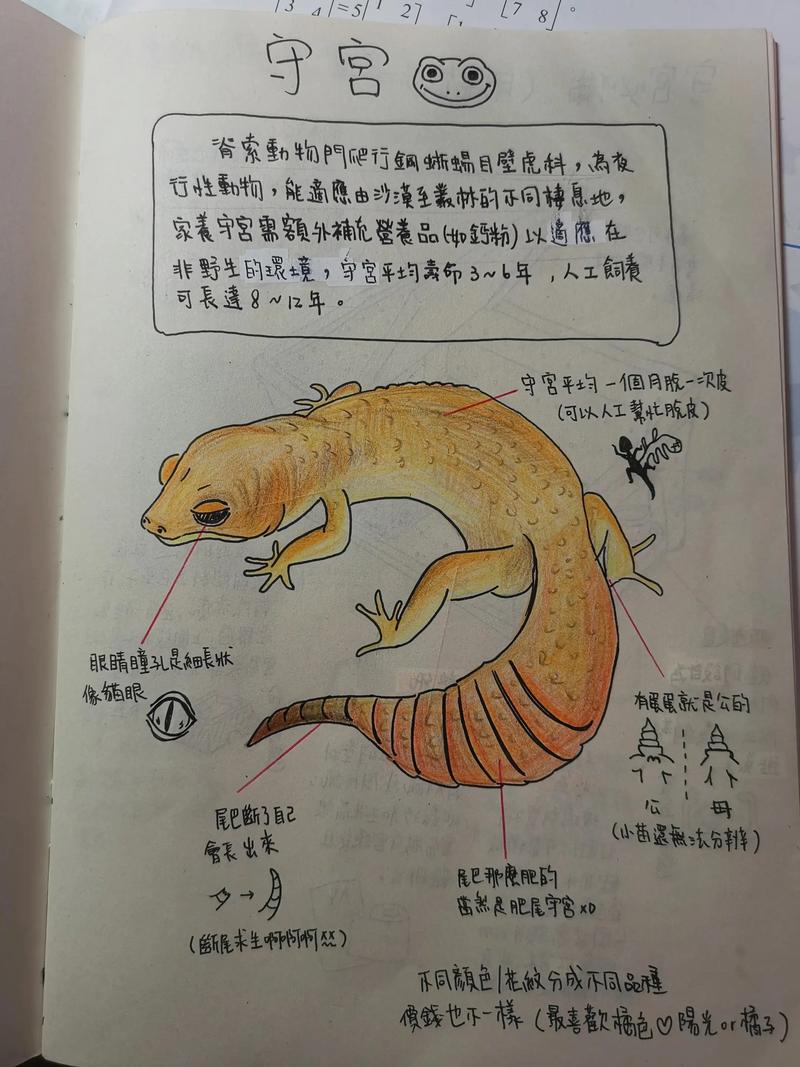 [3 4]=5[1 2] [7 8]。
守宮
脊索動物門爬行鋼蜥蜴目壁虎科，為夜
行性動物，能適應由沙漠至叢林的不同棲息地，
家養守宮需額外補充營養品(如鈣粉)以適應在
非野生的環境，守宮平均壽命3~6年，人工飼養
可長達8~12年。
守宮平均一個月脫一次皮
(可以人工幫忙脫皮)
眼睛瞳孔是細長狀
像貓眼
有蛋蛋就是公的
公 母
(小苗還無法分辨)
尾巴斷了自己
會長出來
(斷尾求生啊啊啊)
尾巴那麼肥的
當然是肥尾守宮xD
不同顏色/花紋分成不同品種
價錢也不一樣(最喜歡橘色♡陽光or橘子)